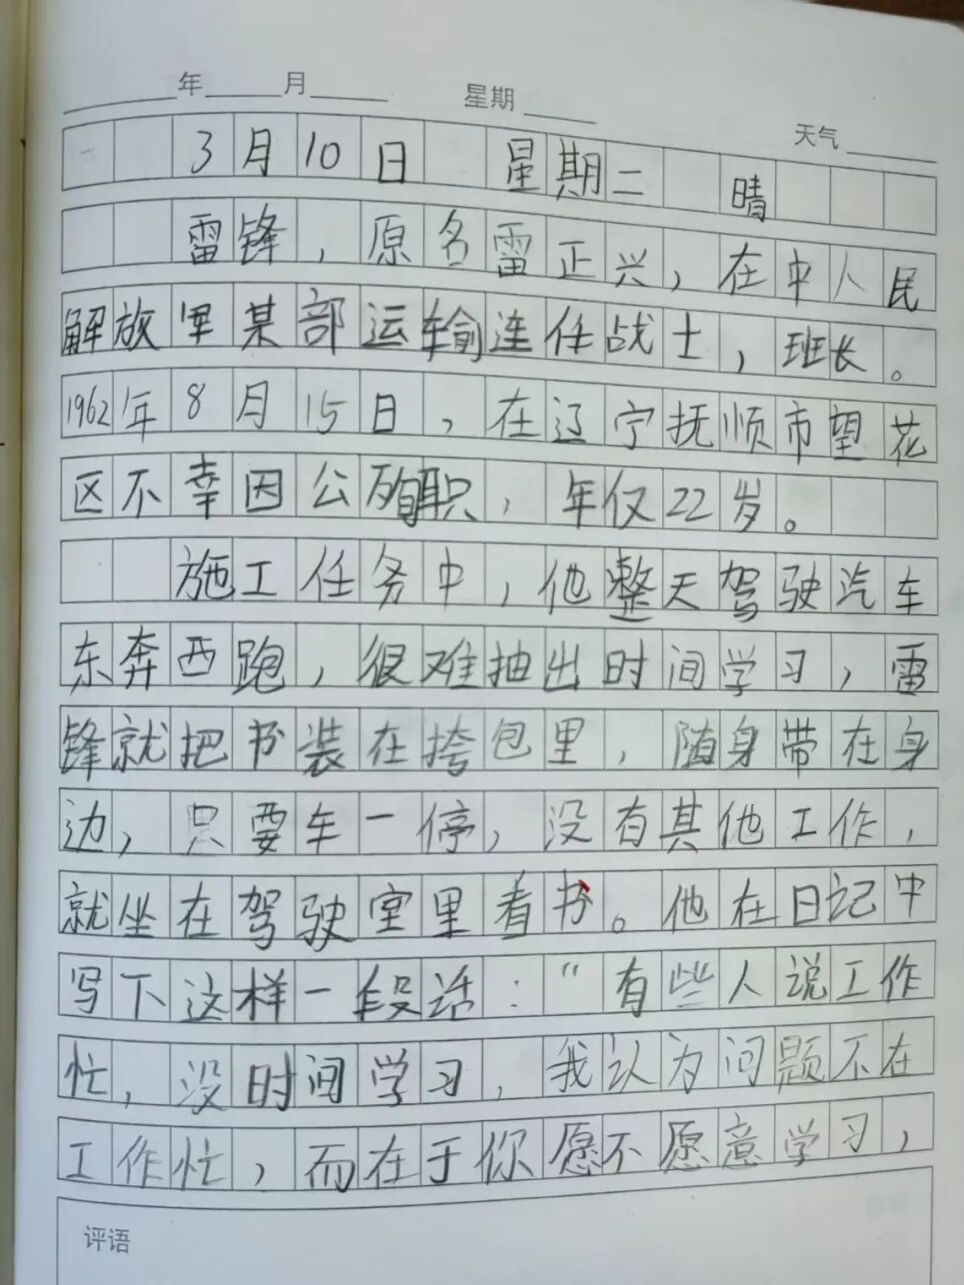 年 月 星期 天气
3月10日 星期二 晴
雷锋，原名雷正兴，在中人民
解放军某部运输连任战士，班长。
1962年8月15日，在辽宁抚顺市望花
区不幸因公殉职，年仅22岁。
施工任务中，他整天驾驶汽车
东奔西跑，很难抽出时间学习，雷
锋就把书装在挎包里，随身带在身
边，只要车一停，没有其他工作，
就坐在驾驶室里看书。他在日记中
写下这样一段话：“有些人说工作
忙，没时间学习，我认为问题不在
工作忙，而在于你愿不愿意学习，
评语